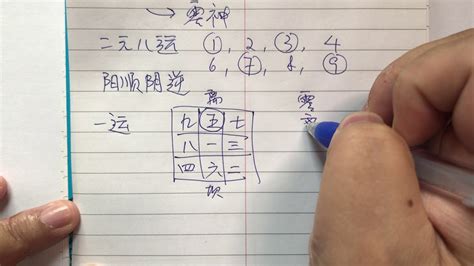 → 零神
二元八运 ①, 2, ③, 4
6, ⑦, 8, ⑨
阳顺阴逆
离 零
一运 九 五 七
八 一 三
四 六 二
坎